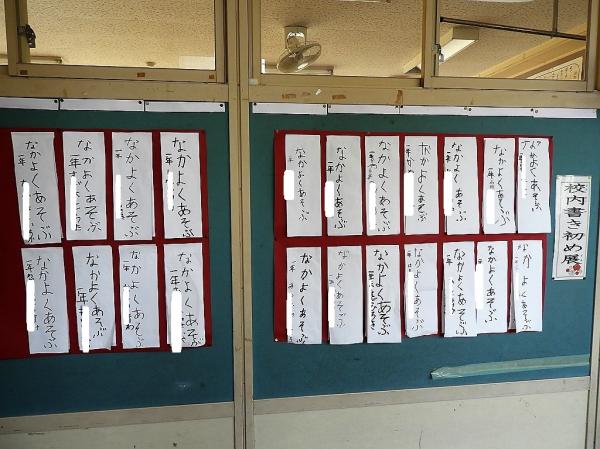 校内書き初め展
なかよくあそぶ
なかよくあそぶ
一年
なかよくあそぶ
一年
なかよくあそぶ
一年
なかよくあそぶ
一年
なかよくあそぶ
一年
なかよくあそぶ
一年
なかよくあそぶ
なかよくあそぶ
なかよくあそぶ
なかよくあそぶ
なかよくあそぶ
なかよくあそぶ
なかよくあそぶ
なかよくあそぶ
一年
なかよくあそぶ
一年
なかよくあそぶ
一年
なかよくあそぶ
一年
なかよくあそぶ
一年
なかよくあそぶ
一年
なかよくあそぶ
一年
なかよくあそぶ
一年